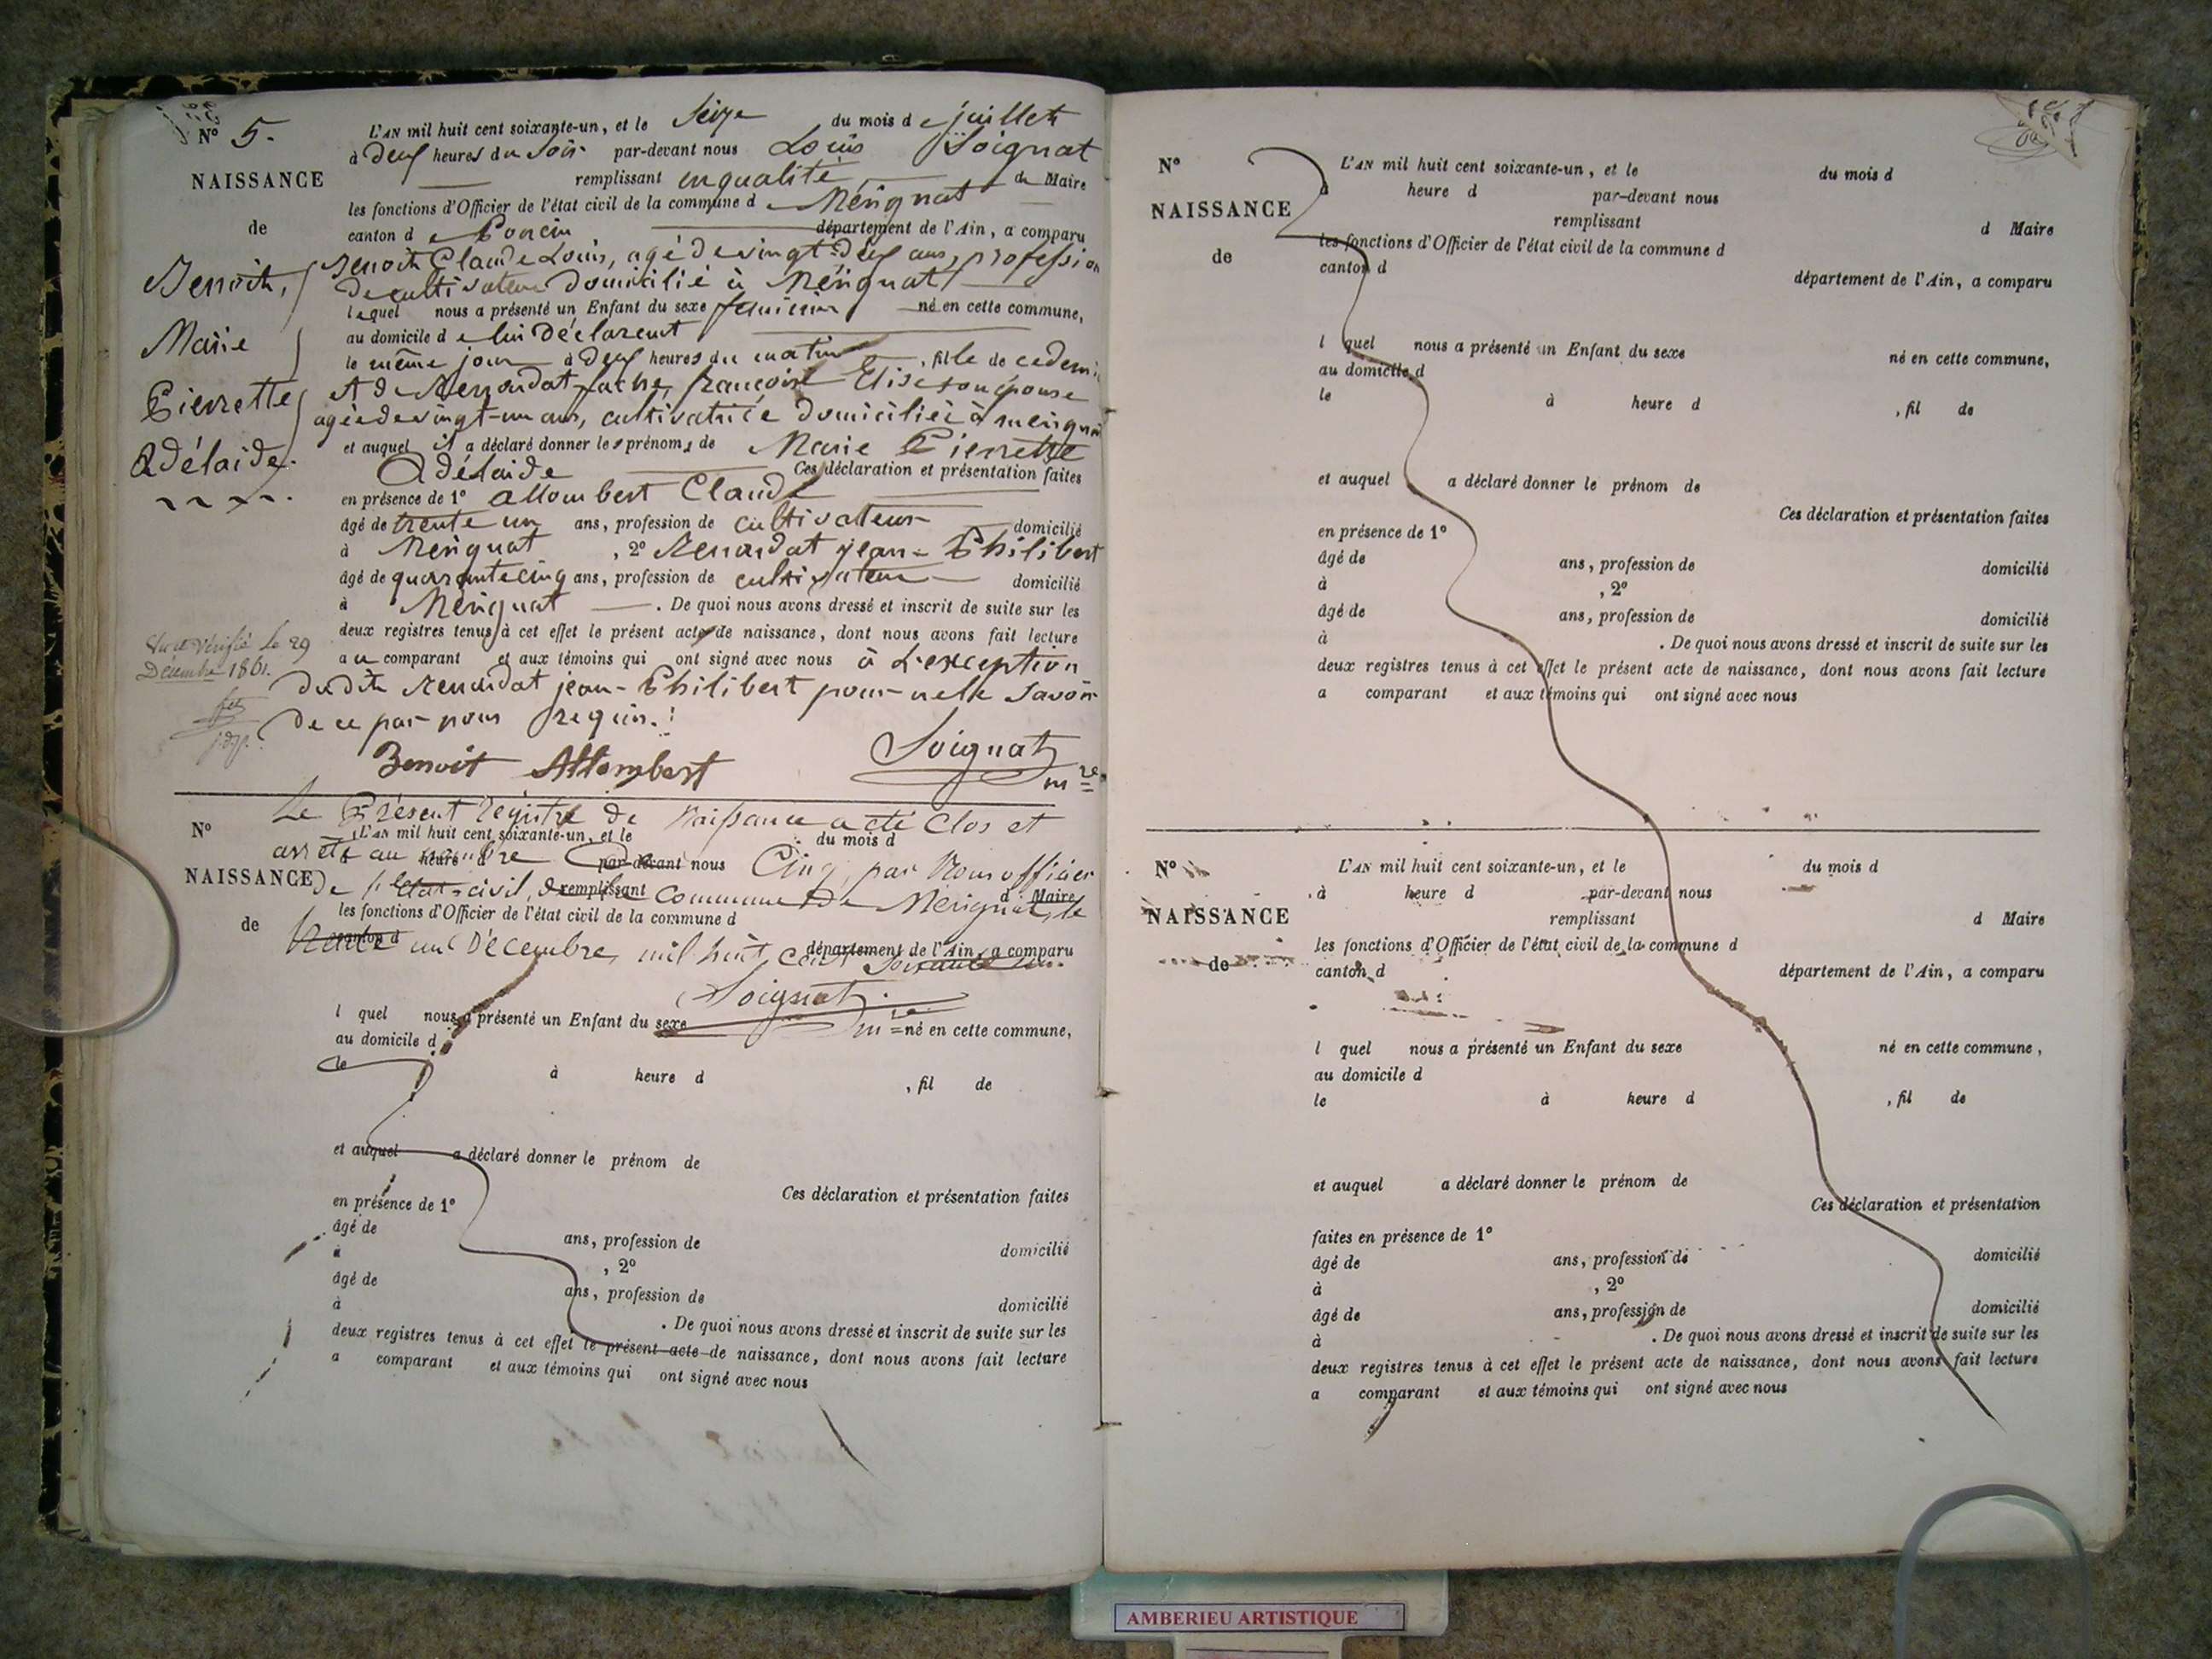 N° 5.
NAISSANCE
de
Benoit,
Marie
Pierrette
Adélaide.
Vu et vérifié le 29
Décembre 1861.
L'AN mil huit cent soixante-un, et le Seize du mois de juillet
à deux heures du Soir par-devant nous Louis Soignat
remplissant en qualité de Maire
les fonctions d'Officier de l'état civil de la commune de Mérignat
canton de Poncin département de l'Ain, a comparu
Benoit Claude Louis, agé de vingt-deux ans, profession
de cultivateur domicilié à Mérignat
lequel nous a présenté un Enfant du sexe féminin né en cette commune,
au domicile de lui déclarent
le même jour à deux heures du matin, fille de ce demi
et de Renardat fache, françoise Elise son épouse
agée de vingt-un ans, cultivatrice domiciliée à mérignat
et auquel il a déclaré donner les prénoms de Marie Pierrette
Adélaide Ces déclaration et présentation faites
en présence de 1° Allombert Claude
âgé de trente un ans, profession de cultivateur domicilié
à Mérignat, 2° Renardat jean-Philibert
âgé de quarante cinq ans, profession de cultivateur domicilié
à Mérignat. De quoi nous avons dressé et inscrit de suite sur les
deux registres tenus à cet effet le présent acte de naissance, dont nous avons fait lecture
au comparant et aux témoins qui ont signé avec nous à L'exception
dudit Renardat jean-Philibert pour ne le Savoir
de ce par nous requis.
Benoit Allombert Soignat
mre
Le Présent registre de Naissance a été Clos et
N° L'AN mil huit cent soixante-un, et le du mois d
arrêté au nombre de Cinq, par Nous officier
heure d par-devant nous
NAISSANCE
de l'Etat-civil, de la Commune de Mérignat, le
remplissant d Maire
de les fonctions d'Officier de l'état civil de la commune d
trente un Décembre, mil huit cent soixante un.
canton d département de l'Ain, a comparu
Soignat
mre
l quel nous a présenté un Enfant du sexe né en cette commune,
au domicile d
le à heure d , fil de
et auquel a déclaré donner le prénom de
Ces déclaration et présentation faites
en présence de 1°
âgé de ans, profession de domicilié
à , 2°
âgé de ans, profession de domicilié
à . De quoi nous avons dressé et inscrit de suite sur les
deux registres tenus à cet effet le présent acte de naissance, dont nous avons fait lecture
a comparant et aux témoins qui ont signé avec nous
N° L'AN mil huit cent soixante-un, et le du mois d
à heure d par-devant nous
NAISSANCE remplissant d Maire
les fonctions d'Officier de l'état civil de la commune d
de canton d département de l'Ain, a comparu
l quel nous a présenté un Enfant du sexe né en cette commune,
au domicile d
le à heure d , fil de
et auquel a déclaré donner le prénom de
Ces déclaration et présentation faites
en présence de 1°
âgé de ans, profession de domicilié
à , 2°
âgé de ans, profession de domicilié
à . De quoi nous avons dressé et inscrit de suite sur les
deux registres tenus à cet effet le présent acte de naissance, dont nous avons fait lecture
a comparant et aux témoins qui ont signé avec nous
N° L'AN mil huit cent soixante-un, et le du mois d
à heure d par-devant nous
NAISSANCE remplissant d Maire
les fonctions d'Officier de l'état civil de la commune d
de canton d département de l'Ain, a comparu
l quel nous a présenté un Enfant du sexe né en cette commune,
au domicile d
le à heure d , fil de
et auquel a déclaré donner le prénom de
Ces déclaration et présentation
faites en présence de 1°
âgé de ans, profession de domicilié
à , 2°
âgé de ans, profession de domicilié
à . De quoi nous avons dressé et inscrit de suite sur les
deux registres tenus à cet effet le présent acte de naissance, dont nous avons fait lecture
a comparant et aux témoins qui ont signé avec nous
AMBERIEU ARTISTIQUE